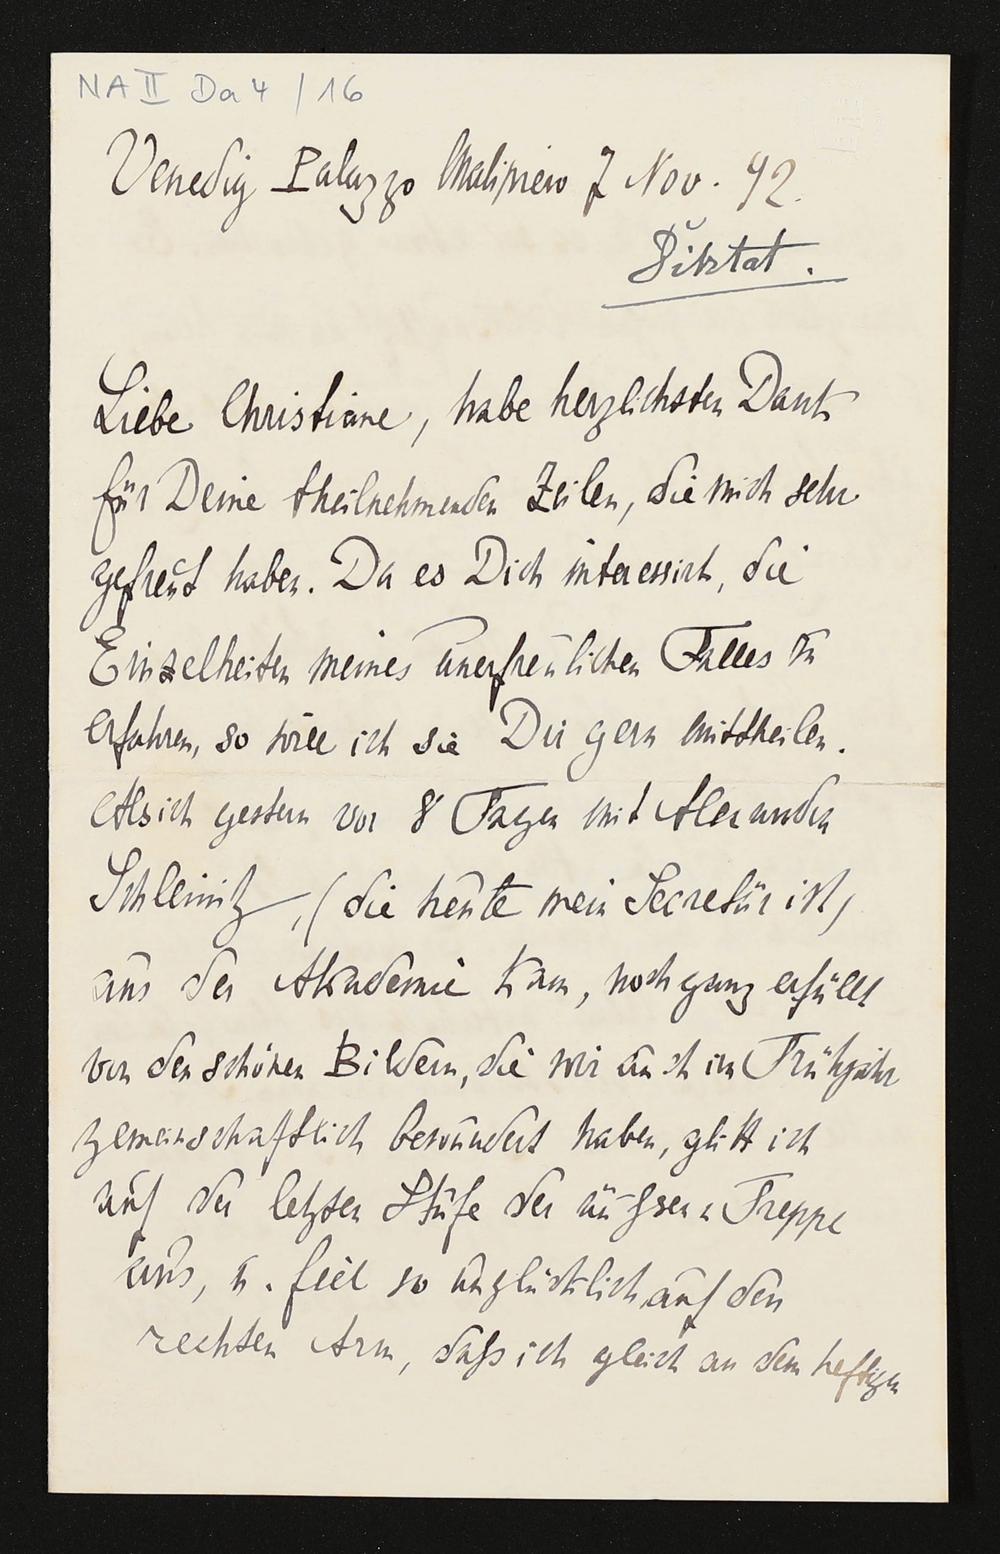 NA II Da 4 / 16
Venedig Palazzo Malipiero 7 Nov. 92.
Diktat.
Liebe Christiane, habe herzlichsten Dank
für Deine theilnehmenden Zeilen, die mich sehr
gefreut haben. Da es Dich interessirt, die
Einzelheiten meines unerfreulichen Falles zu
erfahren, so will ich sie Dir gern mittheilen.
Als ich gestern vor 8 Tagen mit Alexander
Schleinitz, (die heute mein Secretär ist)
aus der Akademie kam, noch ganz erfüllt
von den schönen Bildern, die wir auch im Frühjahr
gemeinschaftlich bewundert haben, glitt ich
auf der letzten Stufe der äußeren Treppe
aus, u. fiel so unglücklich auf den
rechten Arm, daß ich gleich an dem heftigen